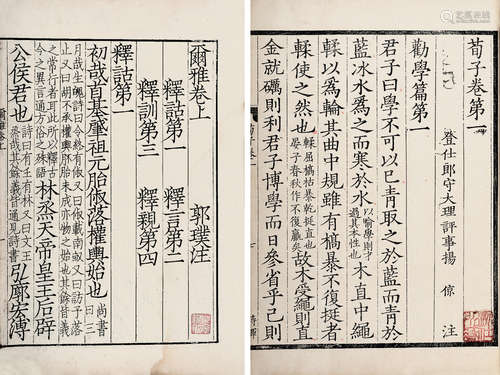 荀子卷第一
登仕郎守大理評事揚 倞 注
勸學篇第一
君子曰學不可以已青取之於藍而青於
藍冰水爲之而寒於水以喻學則才過其本性也木直中繩
輮以爲輪其曲中規雖有槁暴不復挺者
輮使之然也輮屈槁枯暴乾挺直也晏子春秋作不復贏矣故木受繩則直
金就礪則利君子博學而日參省乎己則
爾雅卷上 郭璞注
釋詁第一 釋言第二
釋訓第三 釋親第四
釋詁第一
初哉首基肇祖元胎俶落權輿始也尚書曰三
月哉生魄詩曰令終有俶又曰俶載南畝又曰訪予落
止又曰胡不承權輿胚胎未成亦物之始也其餘皆義
之常行者耳此所以釋古今之異言通方俗之殊語林烝天帝皇王后辟
公侯君也詩曰有壬有林又曰文王烝哉其餘義皆通見詩書弘廓宏溥